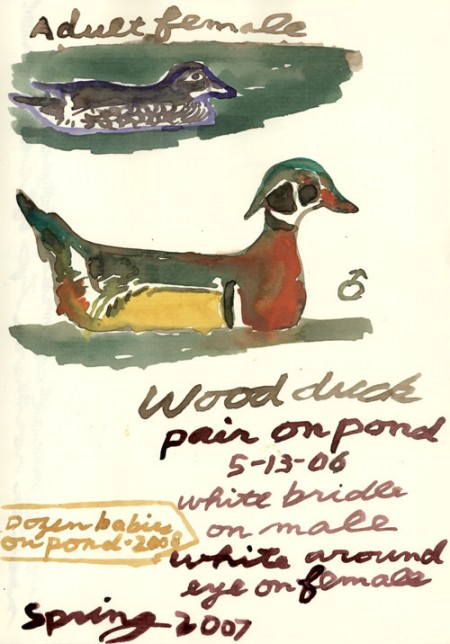 Adult female
♂
Wood duck
pair on pond
5-13-06
white bridle
on male
white around
eye on female
Dozen babies
on pond - 2008
Spring 2007